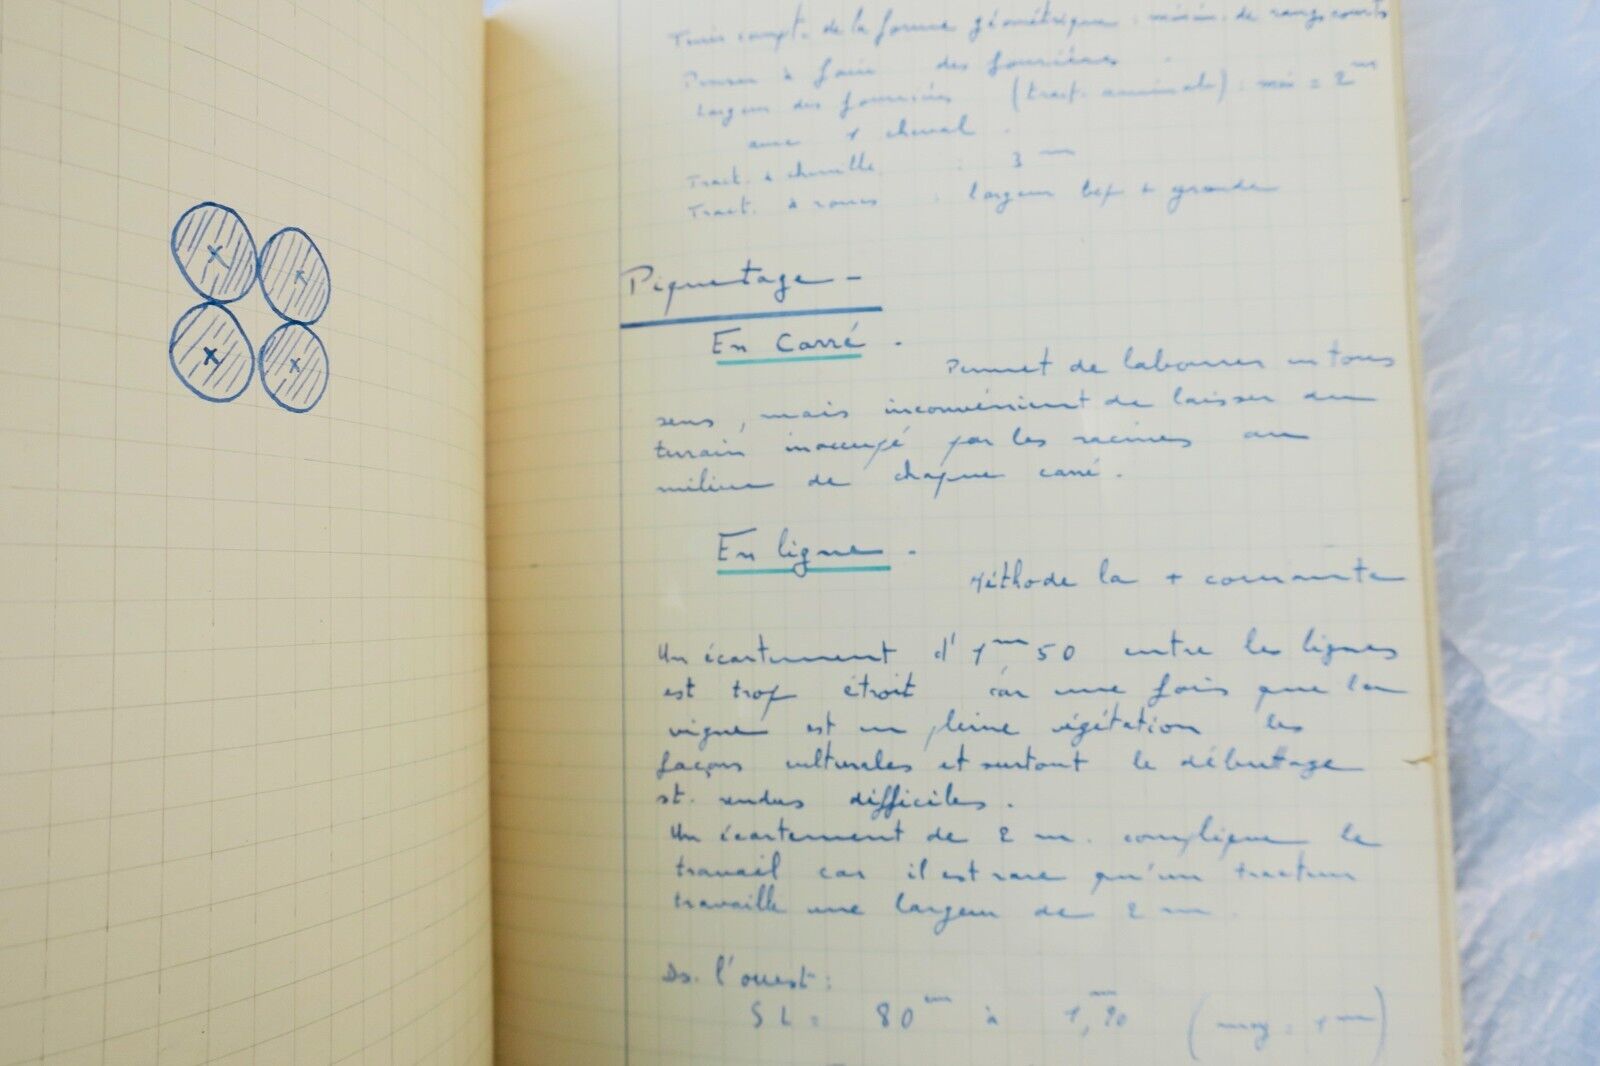 Tenir compt. de la forme géométrique : minim. de rangs courts
Penser à faire des fourrières.
largeur des fourrières (tract. animale) : min = 2 m
avec 1 cheval.
Tract. à chenille : 3 m
Tract. à roues : largeur bcp + grande
Piquetage -
En Carré.
Permet de labourer en tous
sens, mais inconvénient de laisser du
terrain inoccupé par les racines au
milieu de chaque carré.
En ligne.
Méthode la + courante
Un écartement d' 1 m 50 entre les lignes
est trop étroit car une fois que la
vigne est en pleine végétation les
façons culturales et surtout le débuttage
st. rendus difficiles.
Un écartement de 2 m. complique le
travail car il est rare qu'un tracteur
travaille une largeur de 2 m.
Ds. l'ouest :
SL = 80 cm à 1,m20 (moy = 1 m)